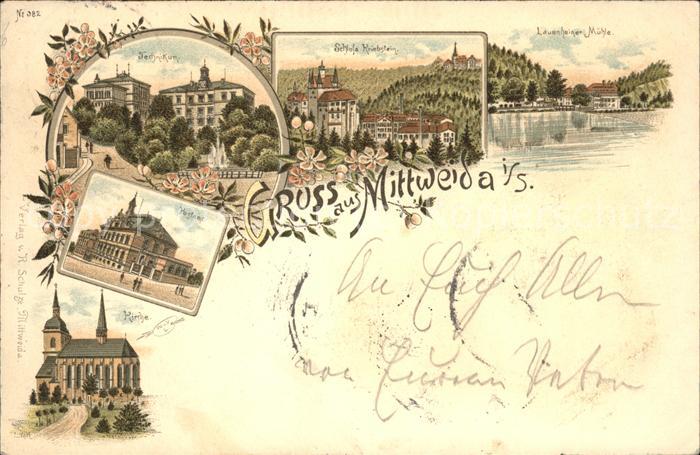 Nr. 982
Technikum.
Schloss Kriebstein.
Lauenhainer Mühle.
Gruss aus Mittweida i/S.
Postamt
Kirche.
Verlag v. R. Schulze Mittweida.
An Euch Allen
von Eurem